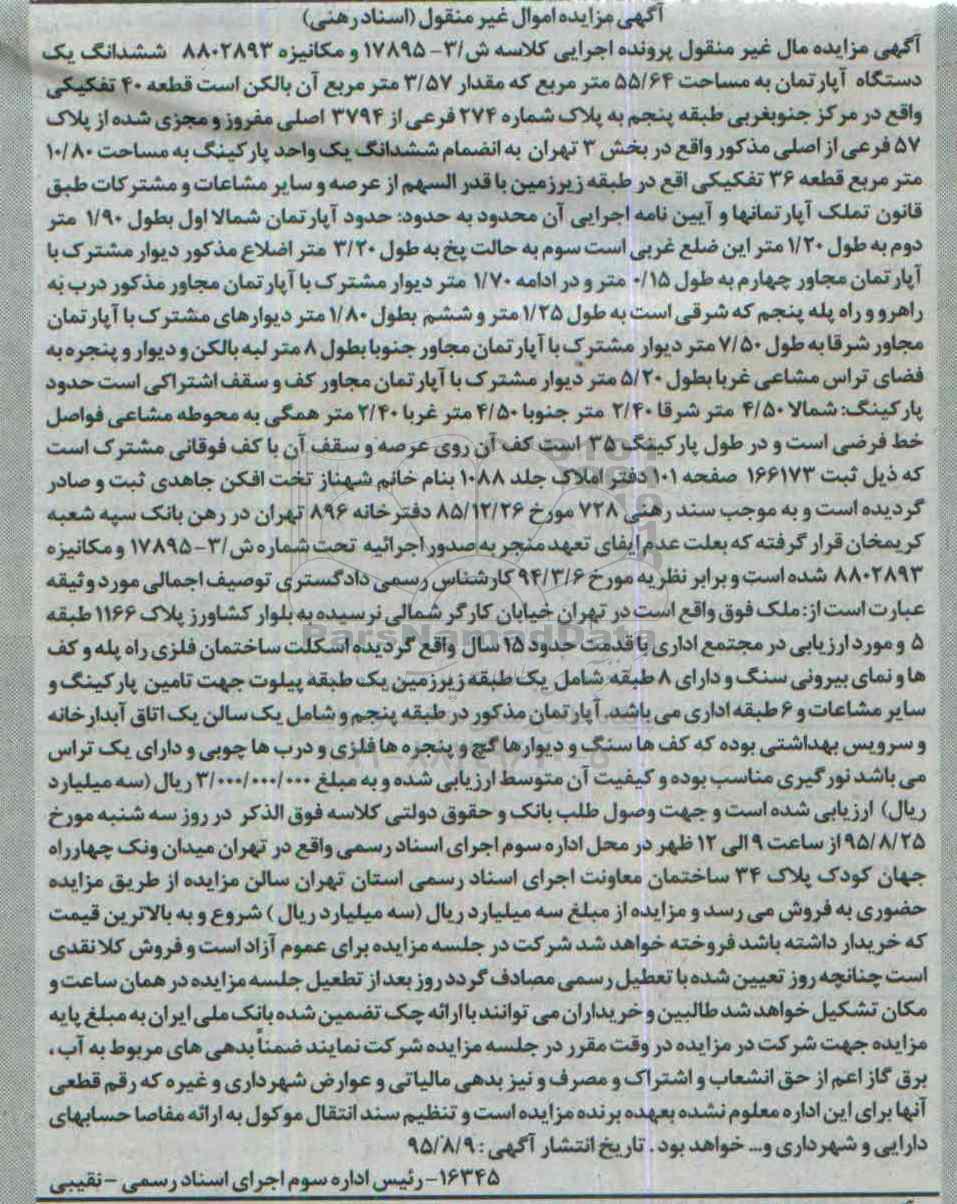 آگهی مزایده اموال غیر منقول (اسناد رهنی)
آگهی مزایده مال غیر منقول پرونده اجرایی کلاسه ش/۳- ۱۷۸۹۵ و مکانیزه ۸۸۰۲۸۹۳ ششدانگ یک
دستگاه آپارتمان به مساحت ۵۵/۶۴ متر مربع که مقدار ۳/۵۷ متر مربع آن بالکن است قطعه ۴۰ تفکیکی
واقع در مرکز جنوبغربی طبقه پنجم به پلاک شماره ۲۷۴ فرعی از ۳۷۹۴ اصلی مفروز و مجزی شده از پلاک
۵۷ فرعی از اصلی مذکور واقع در بخش ۳ تهران به انضمام ششدانگ یک واحد پارکینگ به مساحت ۱۰/۸۰
متر مربع قطعه ۳۶ تفکیکی اقع در طبقه زیرزمین با قدر السهم از عرصه و سایر مشاعات و مشترکات طبق
قانون تملک آپارتمانها و آیین نامه اجرایی آن محدود به حدود: حدود آپارتمان شمالا اول بطول ۱/۹۰ متر
دوم به طول ۱/۲۰ متر این ضلع غربی است سوم به حالت پخ به طول ۳/۲۰ متر اضلاع مذکور دیوار مشترک با
آپارتمان مجاور چهارم به طول ۰/۱۵ متر و در ادامه ۱/۷۰ متر دیوار مشترک با آپارتمان مجاور مذکور درب به
راهرو و راه پله پنجم که شرقی است به طول ۱/۲۵ متر و ششم بطول ۱/۸۰ متر دیوارهای مشترک با آپارتمان
مجاور شرقا به طول ۷/۵۰ متر دیوار مشترک با آپارتمان مجاور جنوبا بطول ۸ متر لبه بالکن و دیوار و پنجره به
فضای تراس مشاعی غربا بطول ۵/۲۰ متر دیوار مشترک با آپارتمان مجاور کف و سقف اشتراکی است حدود
پارکینگ: شمالا ۴/۵۰ متر شرقا ۲/۴۰ متر جنوبا ۴/۵۰ متر غربا ۲/۴۰ متر همگی به محوطه مشاعی فواصل
خط فرضی است و در طول پارکینگ ۳۵ است کف آن روی عرصه و سقف آن با کف فوقانی مشترک است
که ذیل ثبت ۱۶۶۱۷۳ صفحه ۱۰۱ دفتر املاک جلد ۱۰۸۸ بنام خانم شهناز تخت افکن جاهدی ثبت و صادر
گردیده است و به موجب سند رهنی ۷۲۸ مورخ ۸۵/۱۲/۲۶ دفترخانه ۸۹۶ تهران در رهن بانک سپه شعبه
کریمخان قرار گرفته که بعلت عدم ایفای تعهد منجر به صدور اجرائیه تحت شماره ش/۳-۱۷۸۹۵ و مکانیزه
۸۸۰۲۸۹۳ شده است و برابر نظریه مورخ ۹۴/۳/۶ کارشناس رسمی دادگستری توصیف اجمالی مورد وثیقه
عبارت است از: ملک فوق واقع است در تهران خیابان کارگر شمالی نرسیده به بلوار کشاورز پلاک ۱۱۶۶ طبقه
۵ و مورد ارزیابی در مجتمع اداری با قدمت حدود ۱۵ سال واقع گردیده اسکلت ساختمان فلزی راه پله و کف
ها و نمای بیرونی سنگ و دارای ۸ طبقه شامل یک طبقه زیرزمین یک طبقه پیلوت جهت تامین پارکینگ و
سایر مشاعات و ۶ طبقه اداری می باشد. آپارتمان مذکور در طبقه پنجم و شامل یک سالن یک اتاق آبدارخانه
و سرویس بهداشتی بوده که کف ها سنگ و دیوارها گچ و پنجره ها فلزی و درب ها چوبی و دارای یک تراس
می باشد نورگیری مناسب بوده و کیفیت آن متوسط ارزیابی شده و به مبلغ ۳/۰۰۰/۰۰۰/۰۰۰ ریال (سه میلیارد
ریال) ارزیابی شده است و جهت وصول طلب بانک و حقوق دولتی کلاسه فوق الذکر در روز سه شنبه مورخ
۹۵/۸/۲۵ از ساعت ۹ الی ۱۲ ظهر در محل اداره سوم اجرای اسناد رسمی واقع در تهران میدان ونک چهارراه
جهان کودک پلاک ۳۴ ساختمان معاونت اجرای اسناد رسمی استان تهران سالن مزایده از طریق مزایده
حضوری به فروش می رسد و مزایده از مبلغ سه میلیارد ریال (سه میلیارد ریال) شروع و به بالاترین قیمت
که خریدار داشته باشد فروخته خواهد شد شرکت در جلسه مزایده برای عموم آزاد است و فروش کلا نقدی
است چنانچه روز تعیین شده با تعطیل رسمی مصادف گردد روز بعد از تطعیل جلسه مزایده در همان ساعت و
مکان تشکیل خواهد شد طالبین و خریداران می توانند با ارائه چک تضمین شده بانک ملی ایران به مبلغ پایه
مزایده جهت شرکت در مزایده در وقت مقرر در جلسه مزایده شرکت نمایند ضمناً بدهی های مربوط به آب،
برق گاز اعم از حق انشعاب و اشتراک و مصرف و نیز بدهی مالیاتی و عوارض شهرداری و غیره که رقم قطعی
آنها برای این اداره معلوم نشده بعهده برنده مزایده است و تنظیم سند انتقال موکول به ارائه مفاصا حسابهای
دارایی و شهرداری و... خواهد بود. تاریخ انتشار آگهی: ۹۵/۸/۹
۱۶۳۴۵- رئیس اداره سوم اجرای اسناد رسمی - نقیبی
ParsNamadData